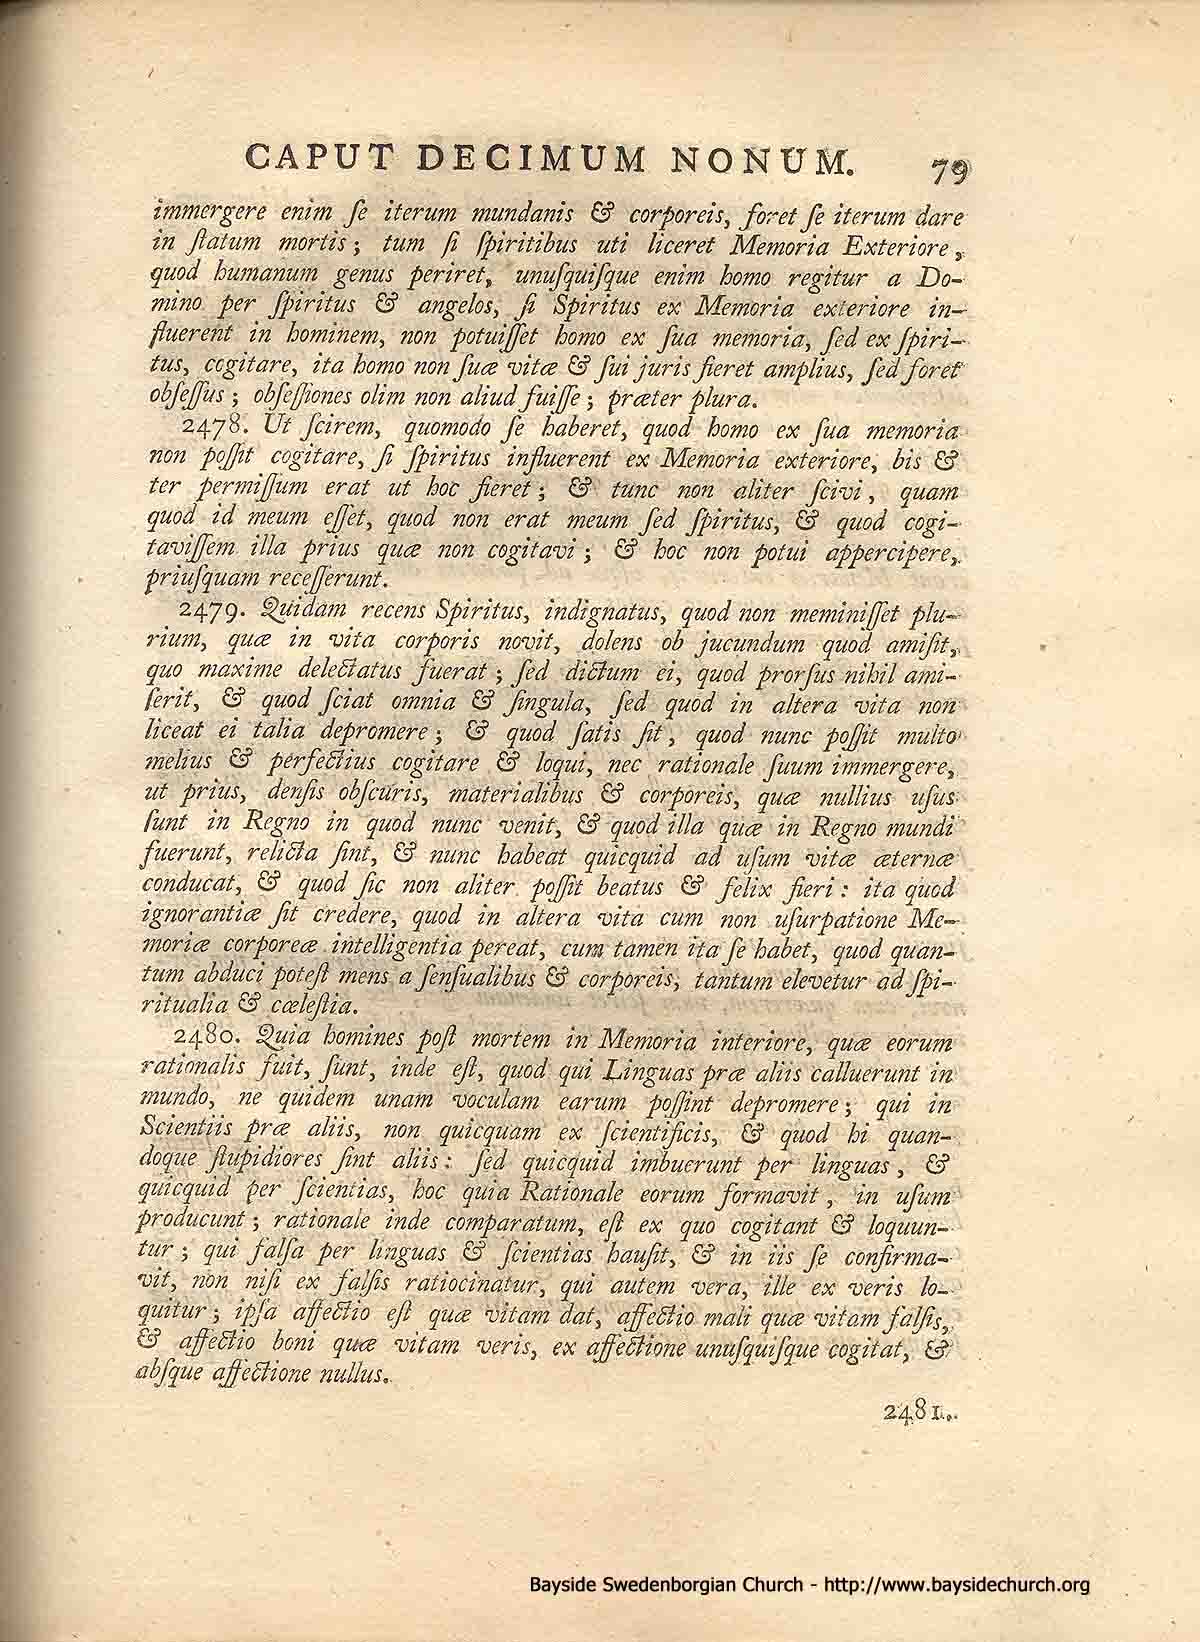 CAPUT DECIMUM NONUM. 79
immergere enim ſe iterum mundanis & corporeis, foret ſe iterum dare
in ſtatum mortis; tum ſi ſpiritibus uti liceret Memoria Exteriore,
quod humanum genus periret, unuſquiſque enim homo regitur a Do-
mino per ſpiritus & angelos, ſi Spiritus ex Memoria exteriore in-
fluerent in hominem, non potuiſſet homo ex ſua memoria, ſed ex ſpiri-
tus, cogitare, ita homo non ſuæ vitæ & ſui juris fieret amplius, ſed foret
obſeſſus; obſeſſiones olim non aliud fuiſſe; præter plura.
2478. Ut ſcirem, quomodo ſe haberet, quod homo ex ſua memoria
non poſſit cogitare, ſi ſpiritus influerent ex Memoria exteriore, bis &
ter permiſſum erat ut hoc fieret; & tunc non aliter ſcivi, quam
quod id meum eſſet, quod non erat meum ſed ſpiritus, & quod cogi-
taviſſem illa prius quæ non cogitavi; & hoc non potui appercipere,
priuſquam receſſerunt.
2479. Quidam recens Spiritus, indignatus, quod non meminiſſet plu-
rium, quæ in vita corporis novit, dolens ob jucundum quod amiſit,
quo maxime delectatus fuerat; ſed dictum ei, quod prorſus nihil ami-
ſerit, & quod ſciat omnia & ſingula, ſed quod in altera vita non
liceat ei talia depromere; & quod ſatis ſit, quod nunc poſſit multo
melius & perfectius cogitare & loqui, nec rationale ſuum immergere,
ut prius, denſis obſcuris, materialibus & corporeis, quæ nullius uſus
ſunt in Regno in quod nunc venit, & quod illa quæ in Regno mundi
fuerunt, relicta ſint, & nunc habeat quicquid ad uſum vitæ æternæ
conducat, & quod ſic non aliter poſſit beatus & felix fieri: ita quod
ignorantiæ ſit credere, quod in altera vita cum non uſurpatione Me-
moriæ corporeæ intelligentia pereat, cum tamen ita ſe habet, quod quan-
tum abduci poteſt mens a ſenſualibus & corporeis, tantum elevetur ad ſpi-
ritualia & cæleſtia.
2480. Quia homines poſt mortem in Memoria interiore, quæ eorum
rationalis fuit, ſunt, inde eſt, quod qui Linguas præ aliis calluerunt in
mundo, ne quidem unam voculam earum poſſint depromere; qui in
Scientiis præ aliis, non quicquam ex ſcientificis, & quod hi quan-
doque ſtupidiores ſint aliis: ſed quicquid imbuerunt per linguas, &
quicquid per ſcientias, hoc quia Rationale eorum formavit, in uſum
producunt; rationale inde comparatum, eſt ex quo cogitant & loquun-
tur; qui falſa per linguas & ſcientias hauſit, & in iis ſe confirma-
vit, non niſi ex falſis ratiocinatur, qui autem vera, ille ex veris lo-
quitur; ipſa affectio eſt quæ vitam dat, affectio mali quæ vitam falſis,
& affectio boni quæ vitam veris, ex affectione unuſquiſque cogitat, &
abſque affectione nullus.
2481.
Bayside Swedenborgian Church - http://www.baysidechurch.org